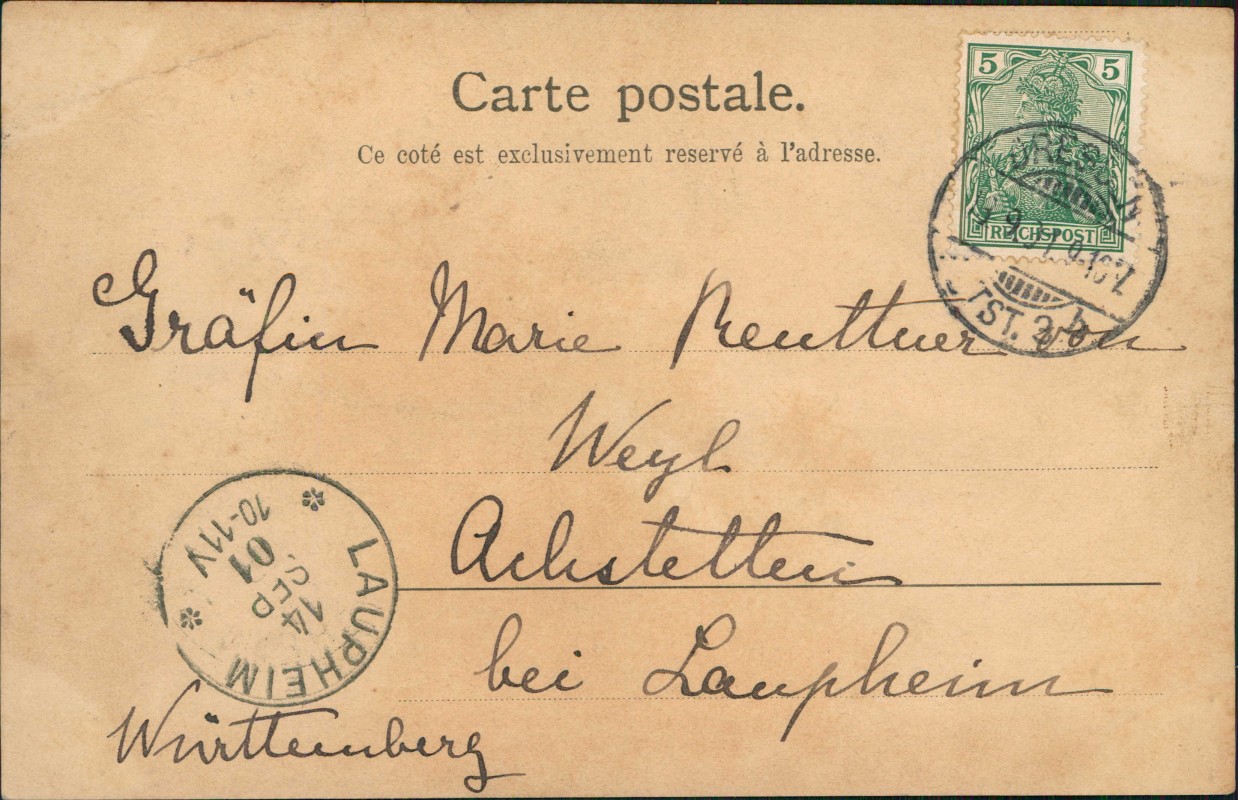 Carte postale.
Ce coté est exclusivement reservé à l'adresse.
5 5
REICHSPOST
TST. 3 b
Gräfin Marie Reuttner von
Weyl
Achstetten
bei Laupheim
Württemberg
LAUPHEIM
14
SEP
01
10-11V